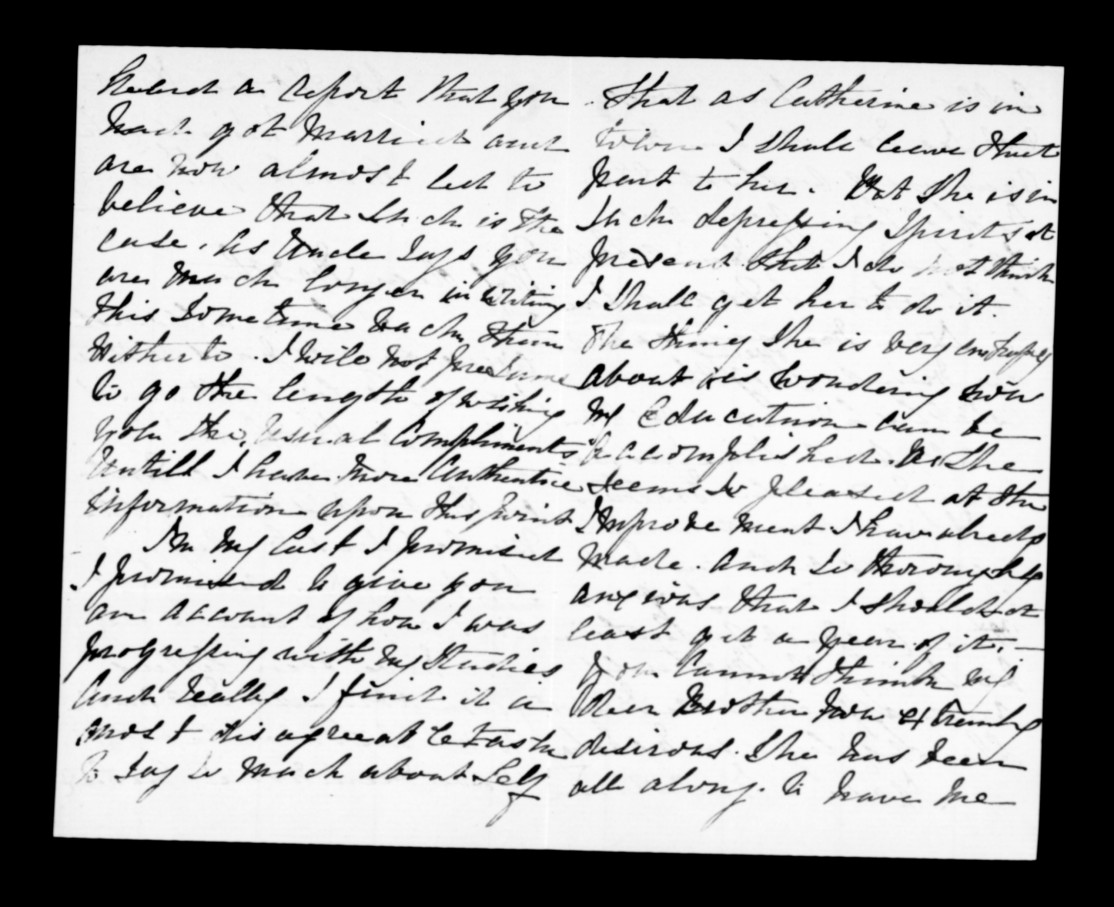 heard a report that you
had got Married and
are now almost led to
believe that such is the
case. As Uncle says you
are much longer in writing
this sometime back, than
hitherto. I will not presume
to go the length of wishing
you the, usual Compliments
untill I have more authentic
information upon this point
In my last I promised
I promised to give you
an account of how I was
progressing with my Studies
And really I find it a
most disagreeable task
to say so much about Self
That as Catherine is in
town I shall leave that
part to her. But she is in
such depressing Spirits at
present that I do not think
I shall get her to do it.
The thing she is very
about is wondering how
my Education can be
accomplished. As she
seems so pleased at the
Improvement I have already
made. And so thoroughly
anxious that I should at
least get a year of it. —
You Cannot think my
Dear Brother how extremly
desirous. She has been
all along. to have me